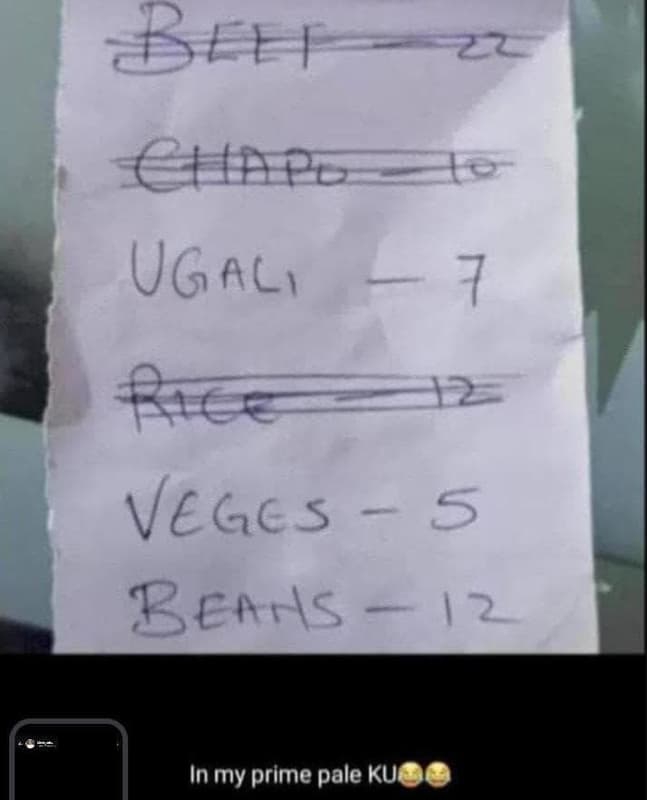 BEEF - 22
CHAPO - 10
UGALI - 7
RICE - 12
VEGES - 5
BEANS - 12
In my prime pale KU😂😂